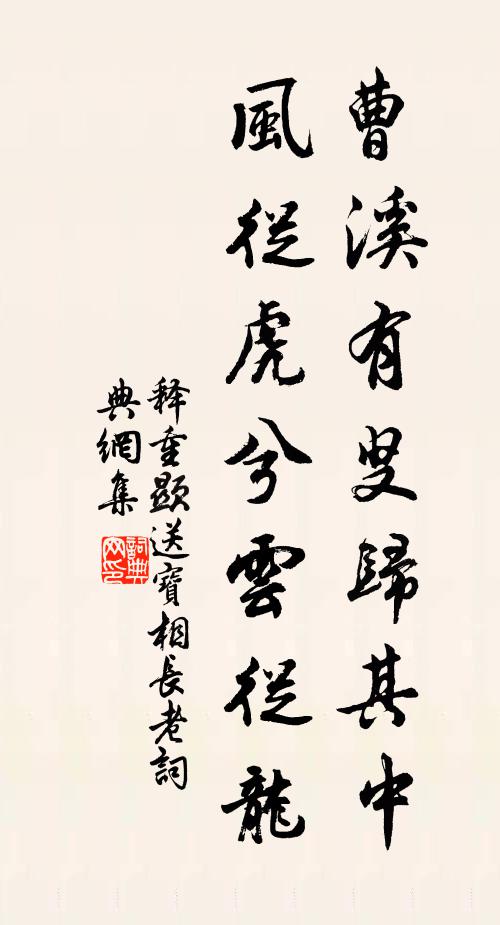 曹溪有叟歸其中
風從虎兮雲從龍
释重顯送寶相長老詞
典網集
詞典網印